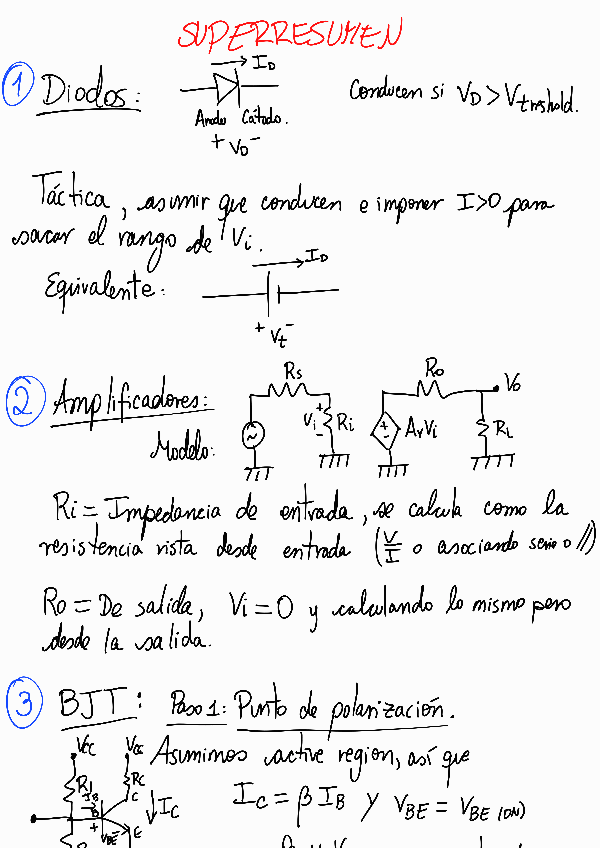 SUPERRESUMEN
1 Diodos:
I_D
Anodo Cátodo.
+ V_D -
Conducen si V_D > V_trshold.
Táctica, asumir que conducen e imponer I>0 para
sacar el rango de V_i.
Equivalente:
I_D
+ V_t -
2 Amplificadores:
Modelo:
R_s
V_i + - R_i
A_v V_i
R_o
V_o
R_L
R_i = Impedancia de entrada, se calcula como la
resistencia vista desde entrada (V/I o asociando serie o //)
R_o = De salida, V_i = 0 y calculando lo mismo pero
desde la salida.
3 BJT: Paso 1: Punto de polarización.
V_CC V_CC
Asumimos active region, así que
R_1 R_C
I_B B C E
+ V_BE -
I_C
I_C = β I_B y V_BE = V_BE (ON)